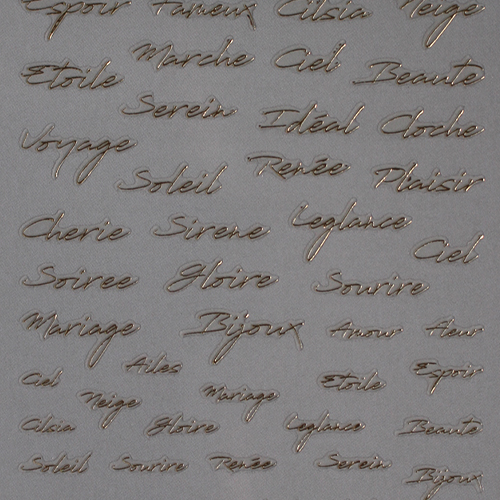 Espoir Fameux Cilsia Neige
Marche Ciel
Etoile Beaute
Serein Idéal Cloche
Voyage Renée
Soleil Plaisir
Cherie Sirene Leglance
Ciel
Soiree Gloire Sourire
Mariage Bijoux Amour fleur
Ciel Ailes Etoile Espoir
Neige Mariage
Cilsia Gloire Leglance Beaute
Soleil Sourire Renée Serein
Bijoux